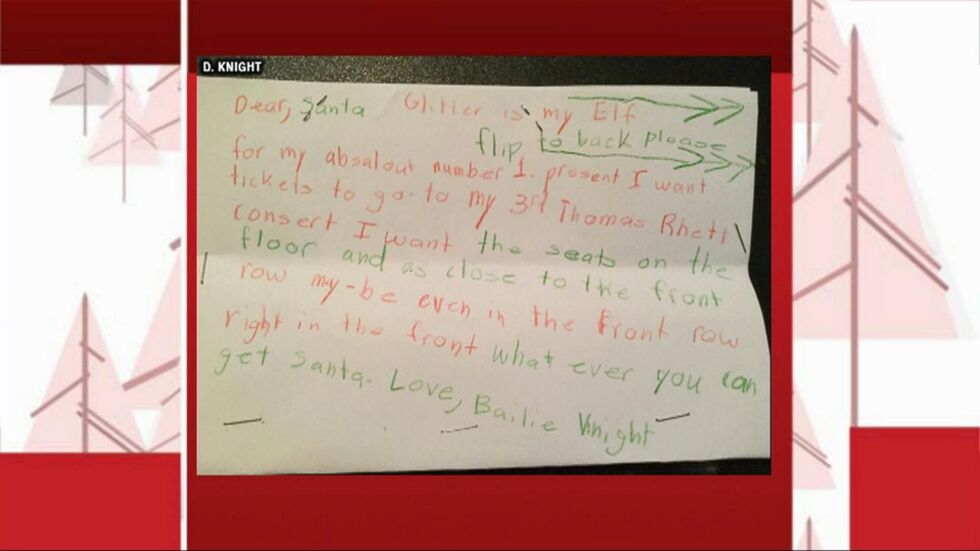 D. KNIGHT
Dear, Santa Glitter is my Elf
flip to back please
for my absalout number 1. present I want
tickets to go to my 3rd Thomas Rhett
consert I want the seats on the
floor and as close to the front
row my-be even in the front row
right in the front what ever you can
get santa. Love, Bailie Knight